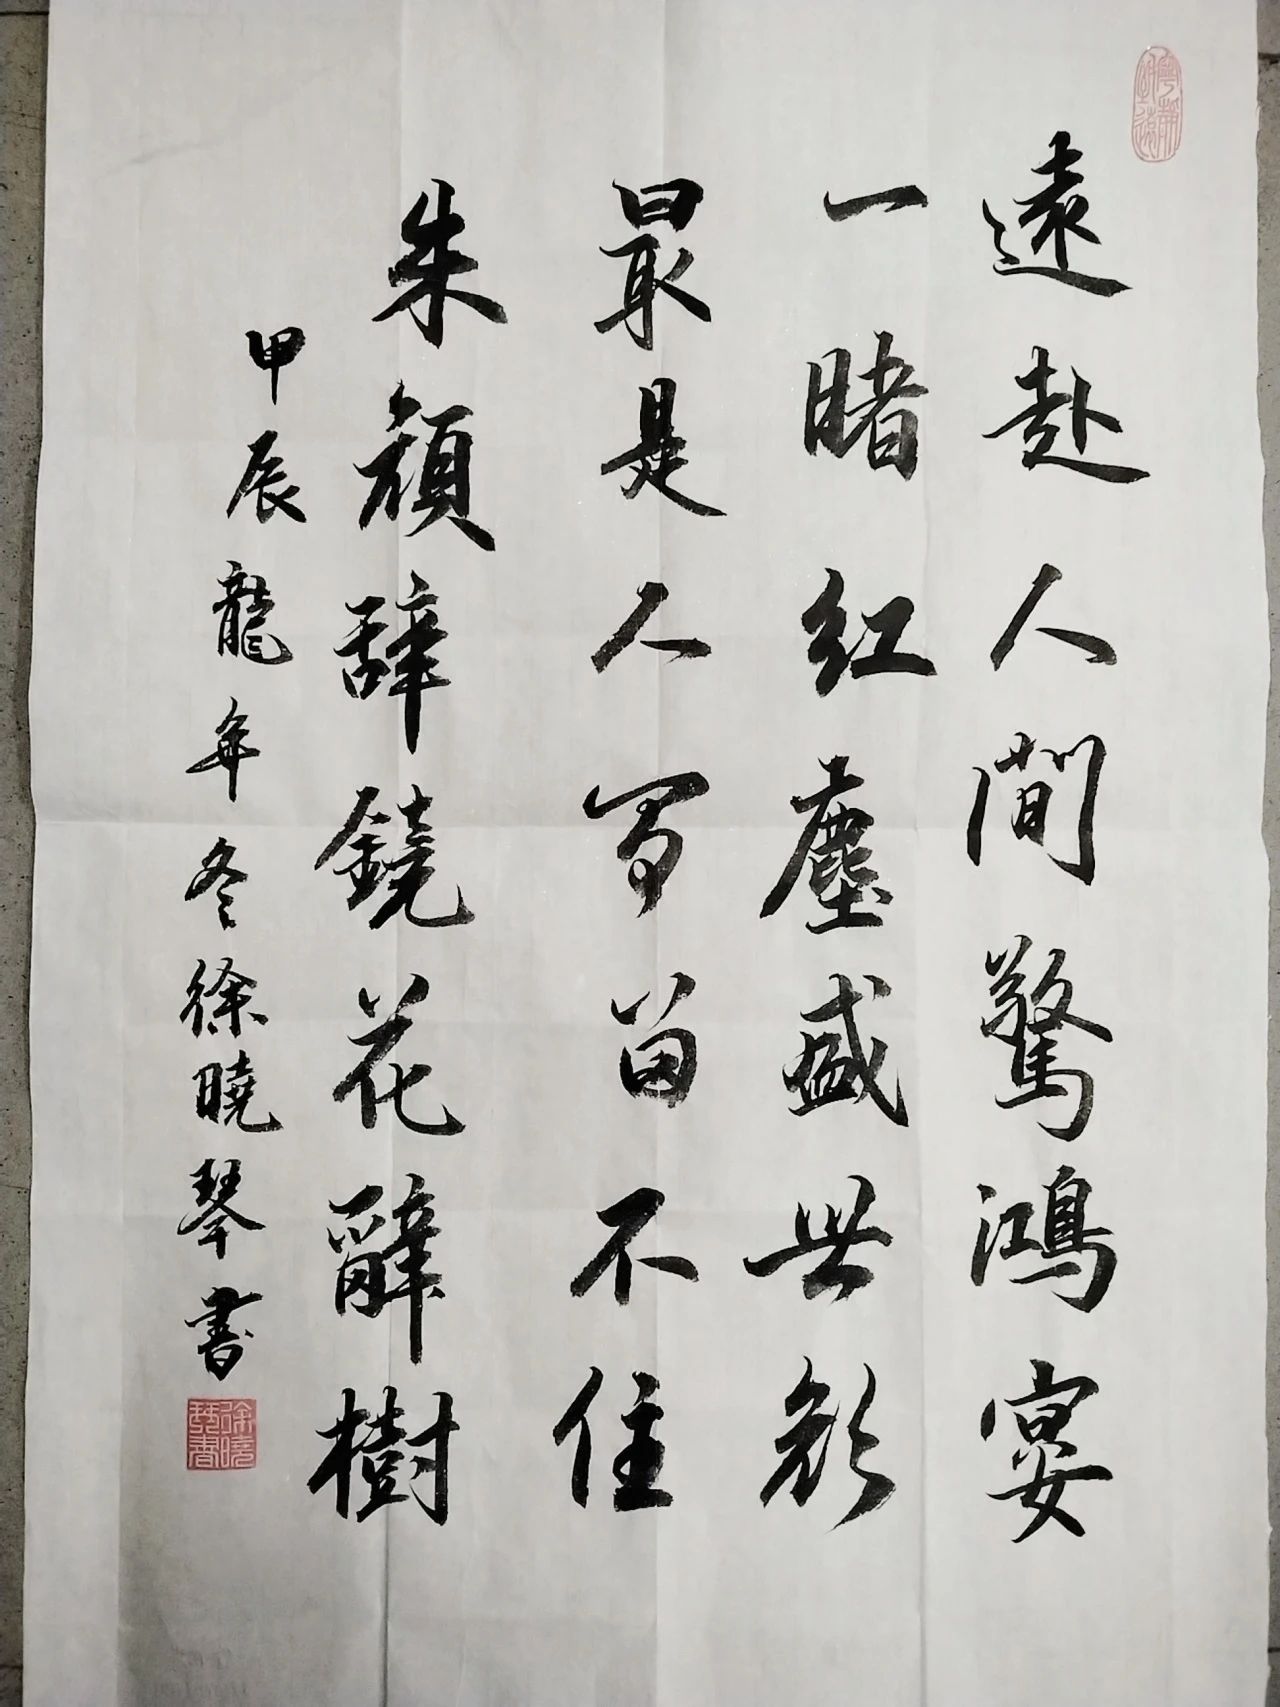 寧靜致遠
遠赴人間驚鴻宴
一睹红塵盛世颜
最是人间留不住
朱顔辭鏡花辭樹
甲辰龍年冬徐曉琴書
徐曉琴書